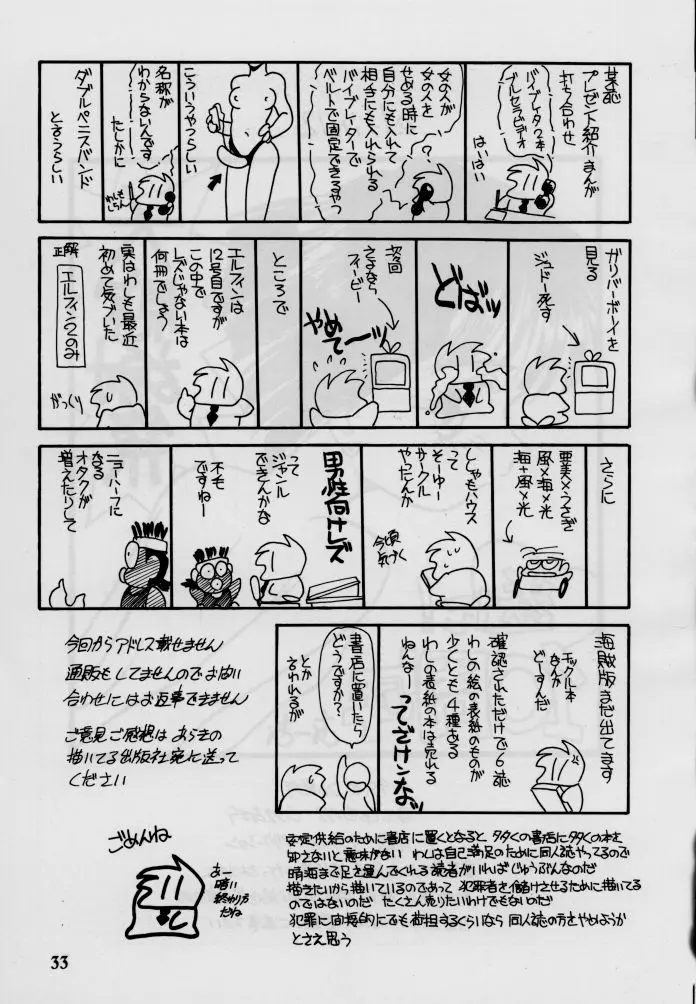 某誌
プレゼント紹介まんが
打ち合わせ
バイブレータ2本
ブルセラビデオ
はいはい
女の人が
女の人を
せめる時に
自分にも入れて
相手にも入れられる
バイブレーターで
ベルトで固定できるやつ
こういうやつらしい
名称が
わからないんです
たしかに
わしも
しらん
ダブルペニスバンド
と言うらしい
ガリバーボーイを
見る
ジュドー死す
どばっ
次回
さよなら
フィービー
やめて〜〜ッ
ところで
エルフィンは
12号目ですが
この中で
レズじゃない本は
何冊でしょう
実はわしも最近
初めて気づいた
正解
エルフィン2のみ
がっくり
さらに
亜美×うさぎ
風×海×光
海+風×光
ししゃもハウス
って
そーゆー
サークル
やったんか
今頃
気づく
男性向けレズ
って
ジャンル
できんかな
不毛
ですねー
ニューハーフに
なる
オタクが
増えたりして
海賊版まだ出てます
モックル本
なんか
どーすんだ
確認されただけで6誌
わしの絵の表紙のものが
少くとも4種ある
わしの表紙の本は売れる
ねんなー
ってざけンなッ
書店に置いたら
どうですか?
とか
言われるが
今回からアドレス載せません
通販もしてませんのでお問い
合わせにはお返事できません
ご意見ご感想は あらきの
描いてる出版社宛に送って
ください
ごめんね
あー
暗い
終わり方
だね
安定供給のために書店に置くとなると 多くの書店に多くの本を
卸さないと意味がない わしは自己満足のために同人誌やってるので
晴海まで足を運んでくれる読者がいればじゅうぶんなのだ
描きたいから描いているのであって 犯罪者を儲けさせるために描いてる
のではないのだ たくさん売りたいわけでもないのだ
犯罪に間接的にでも荷担するくらいなら 同人誌の方をやめようか
とさえ思う
33